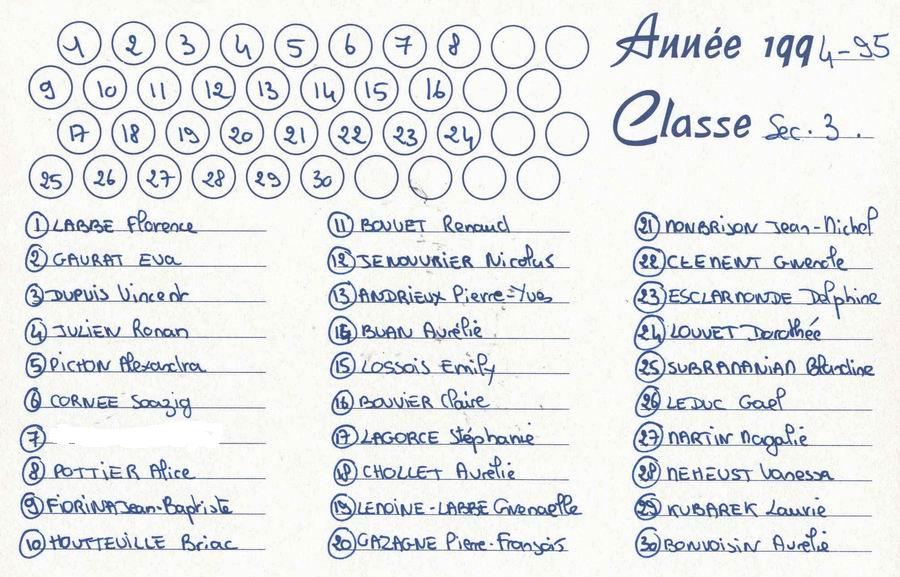 1 2 3 4 5 6 7 8
Année 1994-95
9 10 11 12 13 14 15 16
17 18 19 20 21 22 23 24
Classe Sec. 3.
25 26 27 28 29 30
1 LABBE Florence
2 GAURAT Eva
3 DUPUIS Vincent
4 JULIEN Ronan
5 PICHON Alexandra
6 CORNEE Soazig
7
8 POTTIER Alice
9 FIORINA Jean-Baptiste
10 HOUTTEUILLE Briac
11 BOUVET Renaud
12 JENOUVRIER Nicolas
13 ANDRIEUX Pierre-Yves
14 BUAN Aurélie
15 LOSSOIS Emily
16 BOUVIER Claire
17 LAGORCE Stéphanie
18 CHOLLET Aurélie
19 LEMOINE-LABBE Gwenaelle
20 GAZAGNE Pierre-François
21 MONBRISON Jean-Michel
22 CLEMENT Gwenole
23 ESCLARMONDE Delphine
24 LOUVET Dorothée
25 SUBRAMANIAN Blandine
26 LEDUC Gael
27 MARTIN Magalie
28 MEHEUST Vanessa
29 KUBAREK Laurie
30 BONVOISIN Aurélie